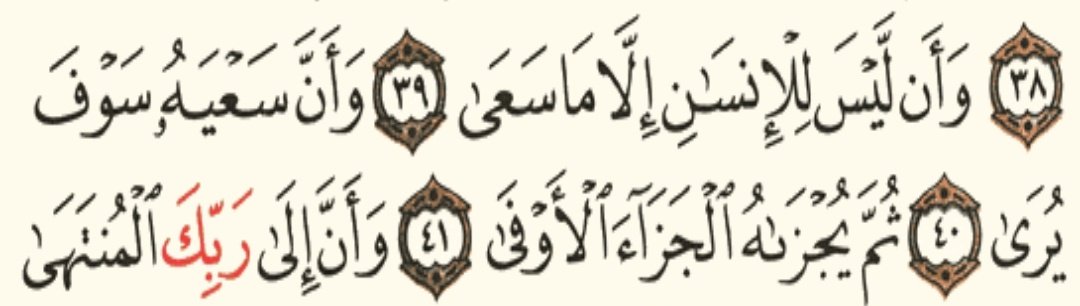 ٣٨ وَأَن لَّيْسَ لِلْإِنسَـٰنِ إِلَّا مَا سَعَىٰ ٣٩ وَأَنَّ سَعْيَهُۥ سَوْفَ
يُرَىٰ ٤٠ ثُمَّ يُجْزَىٰهُ ٱلْجَزَآءَ ٱلْأَوْفَىٰ ٤١ وَأَنَّ إِلَىٰ رَبِّكَ ٱلْمُنتَهَىٰ